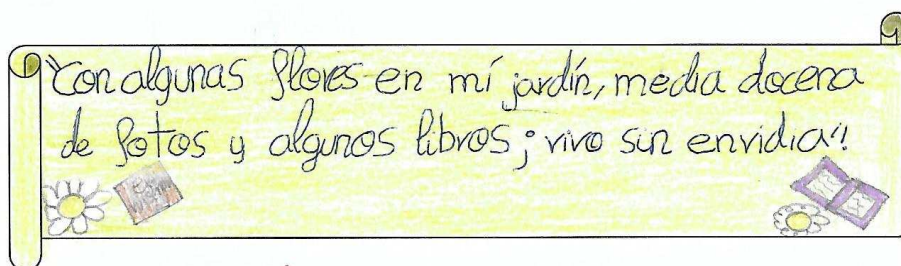 "Con algunas flores en mí jardín, media docena
de fotos y algunos libros; vivo sin envidia".